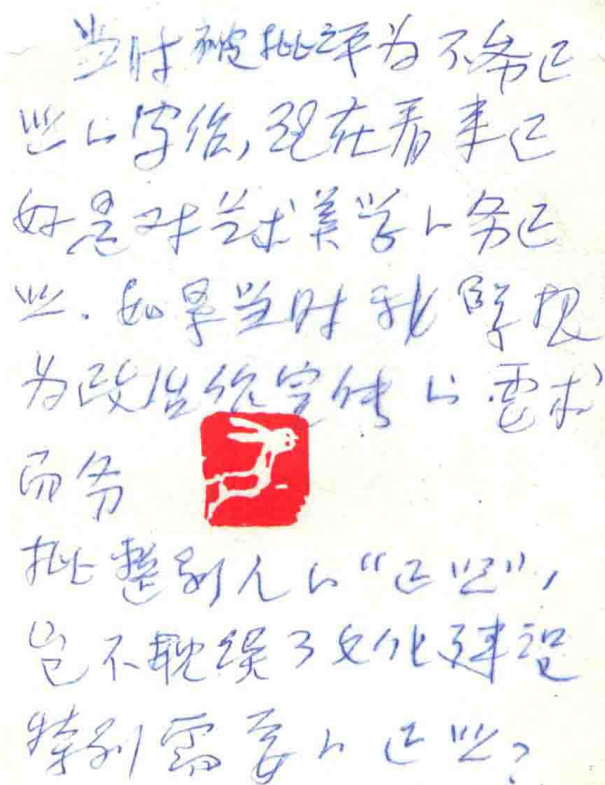 当时被批评为不务正
业的字信,现在看来正
好是对艺术美学的务正
业.如果当时我
为政治作宣传的需求
而务
批整别人的“正业”,
岂不耽误了文化建设
特别需要的正业?